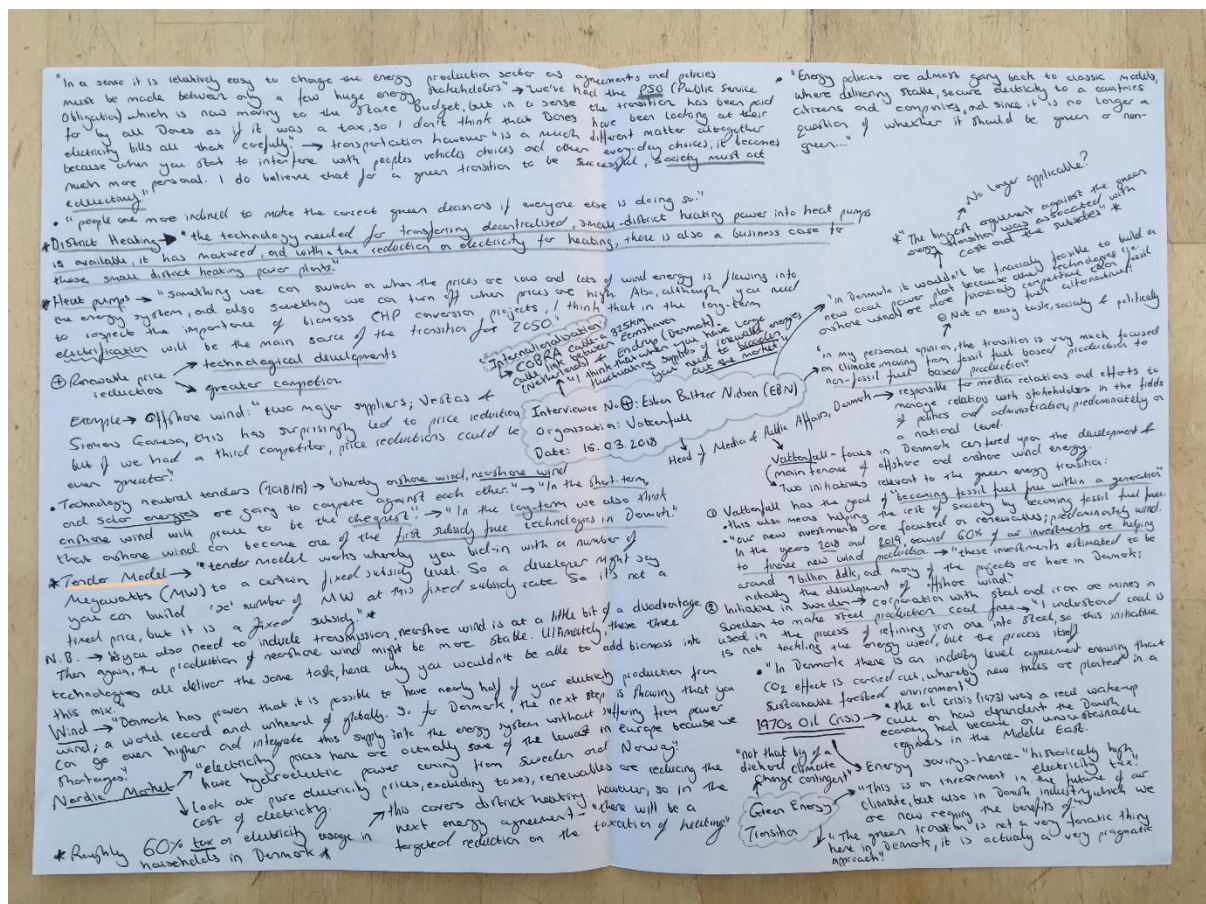 "In a sense it is relatively easy to change the energy production sector as agreements and policies
must be made between only a few huge energy stakeholders" → "We've had the PSO (Public Service
Obligation) which is now moving to the State Budget, but in a sense the transition has been paid
for by all Danes as if it was a tax, so I don't think that Danes have been looking at their
electricity bills all that carefully." → transportation however "is a much different matter altogether
because when you start to interfere with peoples vehicles choices and other every-day choices, it becomes
much more personal. I do believe that for a green transition to be successful, society must act
collectively"
• "people are more inclined to make the correct green decisions if everyone else is doing so."
*District Heating → "the technology needed for transferring decentralised, small-district heating power into heat pumps
is available, it has matured, and with a tax reduction on electricity for heating, there is also a business case for
these small district heating power plants."
*Heat pumps → "Something we can switch on when the prices are low and lots of wind energy is flowing into
the energy system, and also something we can turn off when prices are high. Also, although you need
to respect the importance of biomass CHP conversion projects, I think that in the long-term
electrification will be the main source of the transition for 2050."
⊕ Renewable price reductions
→ technological developments
→ greater competition
Example → Offshore wind: "two major suppliers; Vestas &
Siemens Gamesa, this has surprisingly led to price reduction
but if we had a third competitor, price reductions could be
even greater."
• Technology neutral tenders (2018/19) → "whereby onshore wind, nearshore wind
and solar energies are going to compete against each other." → "In the short term,
onshore wind will prove to be the cheapest." → "In the long-term we also think
that onshore wind can become one of the first subsidy free technologies in Denmark."
*Tender Model → "tender model works whereby you bid-in with a number of
Megawatts (MW) to a certain fixed subsidy level. So a developer might say
you can build 'x' number of MW at this fixed subsidy rate. So it's not a
fixed price, but it is a fixed subsidy." *
N.B. → "as you also need to include transmission, nearshore wind is at a little bit of a disadvantage.
Then again, the production of nearshore wind might be more stable. Ultimately, these three
technologies all deliver the same task, hence why you wouldn't be able to add biomass into
this mix."
Wind → "Denmark has proven that it is possible to have nearly half of your electricity production from
wind; a world record and unheard of globally. So for Denmark, the next step is showing that you
can go even higher and integrate this supply into the energy system without suffering from power
shortages."
Nordic Market → "electricity prices here are actually some of the lowest in Europe because we
have hydroelectric power coming from Sweden and Norway"
↓ Look at pure electricity prices, excluding taxes, renewables are reducing the
cost of electricity.
*Roughly 60% tax on electricity usage in
households in Denmark *
→ this covers district heating however, so in the
next energy agreement - "there will be a
targeted reduction on the taxation of heating"
Internationalisation
→ COBRA Cable: a 325km
Cable link between Eemshaven
(Netherlands) & Endrup (Denmark).
"I think that when you have large
fluctuating supplies of renewable energies
you need to broaden
out the market"
Interviewee No ⊕: Esben Baltzer Nielsen (EBN)
Organisation: Vattenfall
Date: 15.03.2018
• "Energy policies are almost going back to classic models,
where delivering stable, secure electricity to a countries
citizens and companies, and since it is no longer a
question of whether it should be green or non-
green..."
No longer applicable?
*"The biggest argument against the green
energy transition was associated with
cost and the subsidies" *
"in Denmark it wouldn't be financially feasible to build a
new coal power plant because other technologies i.e.
onshore wind are more financially competitive than fossil
fuel alternatives"
Not an easy task, socially & politically
"in my personal opinion, the transition is very much focused
on climate, moving from fossil fuel based production to
non-fossil fuel based production"
Head of Media & Public Affairs, Denmark → responsible for media relations and efforts to
manage relations with stakeholders in the fields
of politics and administration; predominately on
a national level.
Vattenfall - focus in Denmark centered upon the development &
maintenance of offshore and onshore wind energy.
• Two initiatives relevant to the green energy transition:
① Vattenfall has the goal of "becoming fossil fuel free within a generation"
• this also means helping the rest of society by becoming fossil fuel free.
• "our new investments are focused on renewables; predominately wind.
In the years 2018 and 2019, around 60% of our investments are helping
to finance new wind production → "these investments estimated to be
around 9 billion ddk, and many of the projects are here in Denmark;
notably the development of offshore wind"
② Initiative in Sweden → corporation with steel and iron ore mines in
Sweden to make steel production coal free → "I understand coal is
used in the process of refining iron ore into steel, so this initiative
is not tackling the energy used, but the process itself.
• "In Denmark there is an industry level agreement ensuring that
CO2 effect is carried out, whereby new trees are planted in a
sustainable forested environment."
1970s Oil Crisis → "the oil crisis (1973) was a real wake-up
call on how dependent the Danish
economy had become on unsustainable
regimes in the Middle East.
Energy savings - hence - "historically high
electricity tax"
"This is an investment in the future of our
climate, but also in Danish industry which we
are now reaping the benefits of"
"not that big of a
diehard climate
change contingent"
Green Energy
Transition
↓ "The green transition is not a very fanatic thing
here in Denmark, it is actually a very pragmatic
approach"